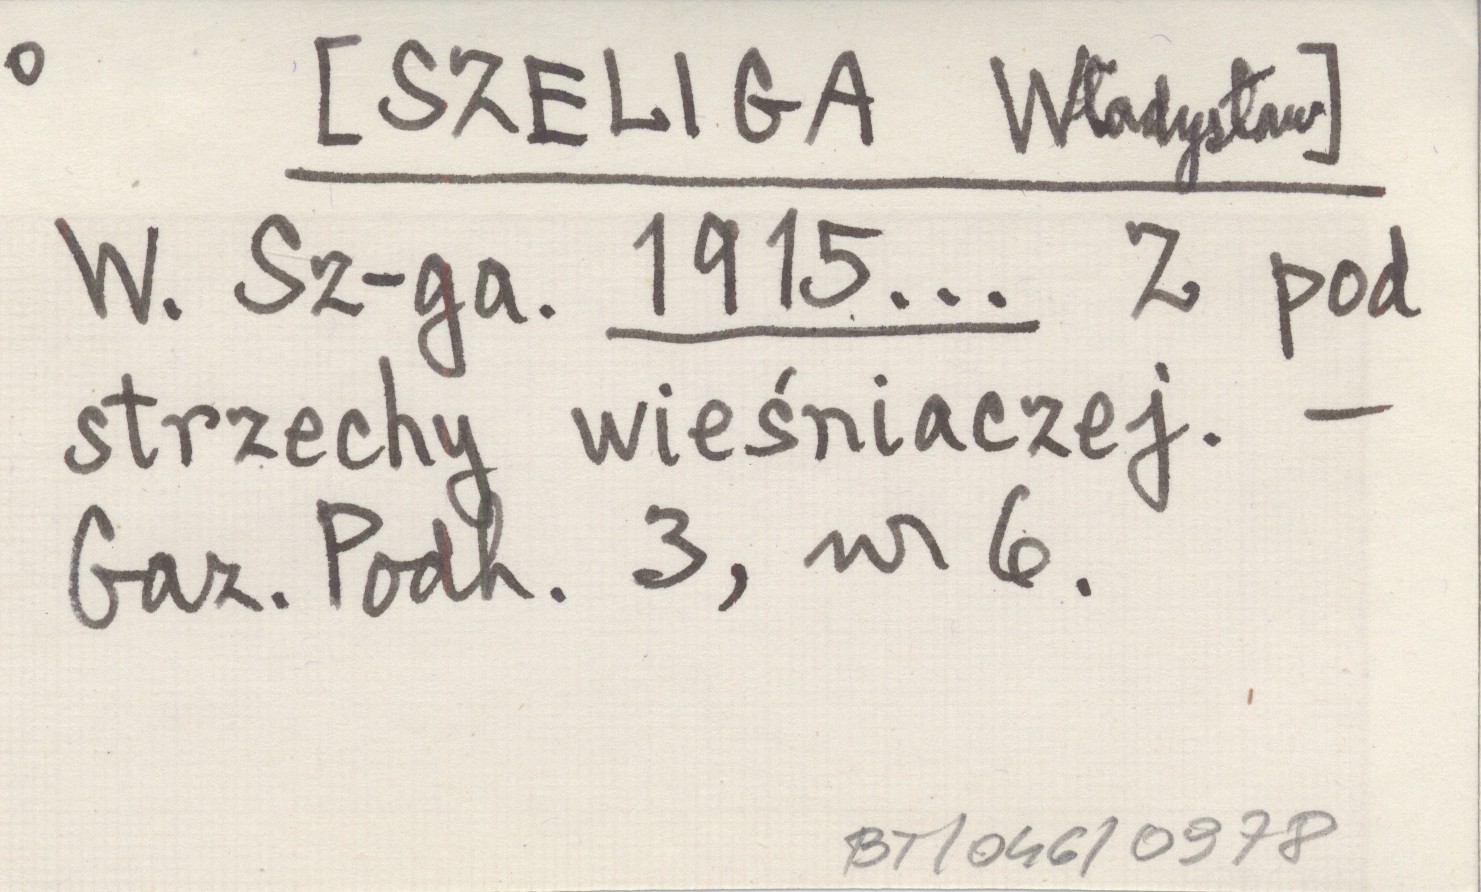 o [SZELIGA Władysław]
W. Sz-ga. 1915... Z pod
strzechy wieśniaczej. —
Gaz. Podh. 3, nr 6.
BT/046/0978